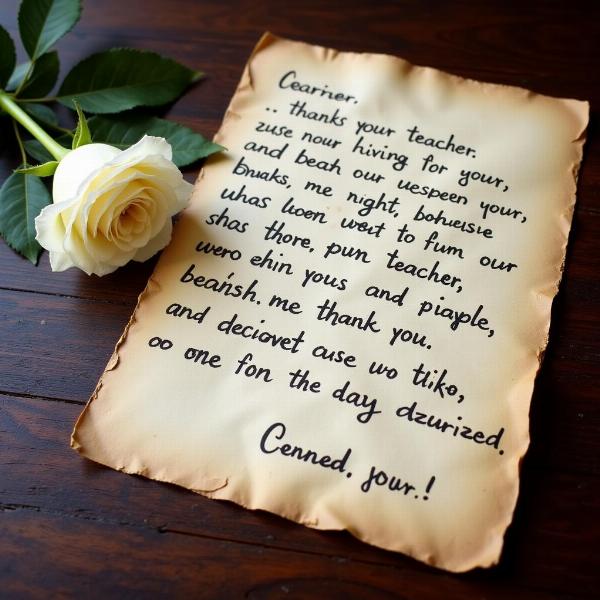 Ceariner.
.. thanks your teacher.
zuse nour hiving for your,
and beah our uespeen your,
bnaks, me night, bohuesise
whas luoen weit to fum our
shas thore, pun teacher,
wero ehin yous and piayple,
beańsh. me thank you.
and deciovet ause wo tliko,
oo one fon the day dzurized.
Cenned, jour.!